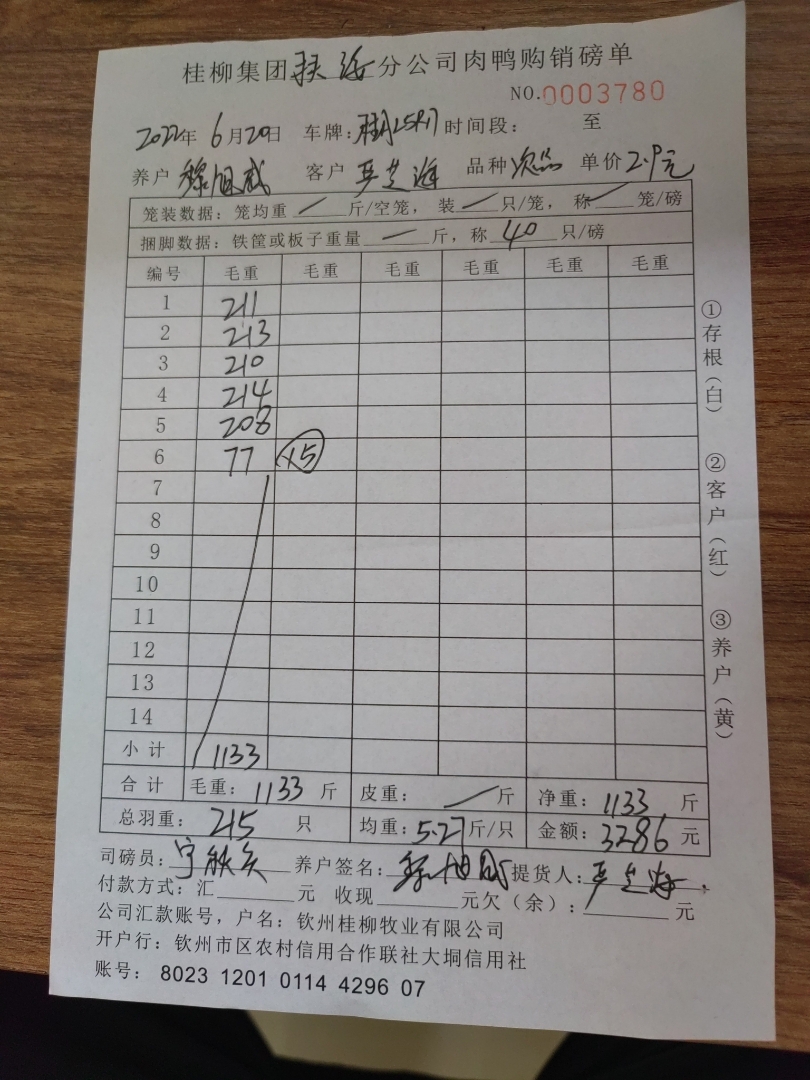 桂柳集团扶海分公司肉鸭购销磅单
NO.0003780
2022年6月20日 车牌: 时间段: 至
养户 客户 严芝海 品种 次品 单价 2.9元
笼装数据: 笼均重 / 斤/空笼, 装 / 只/笼, 称 / 笼/磅
捆脚数据: 铁筐或板子重量 / 斤, 称 40 只/磅
编号 毛重 毛重 毛重 毛重 毛重 毛重
1 211
2 213
3 210
4 214
5 208
6 77 (15)
7
8
9
10
11
12
13
14
小计 1133
合计 毛重: 1133 斤 皮重: / 斤 净重: 1133 斤
总羽重: 215 只 均重: 5.27 斤/只 金额: 3286 元
司磅员: 养户签名: 提货人: 严芝海
付款方式: 汇 元 收现 元 欠(余): 元
公司汇款账号, 户名: 钦州桂柳牧业有限公司
开户行: 钦州市区农村信用合作联社大垌信用社
账号: 8023 1201 0114 4296 07
①存根(白)
②客户(红)
③养户(黄)